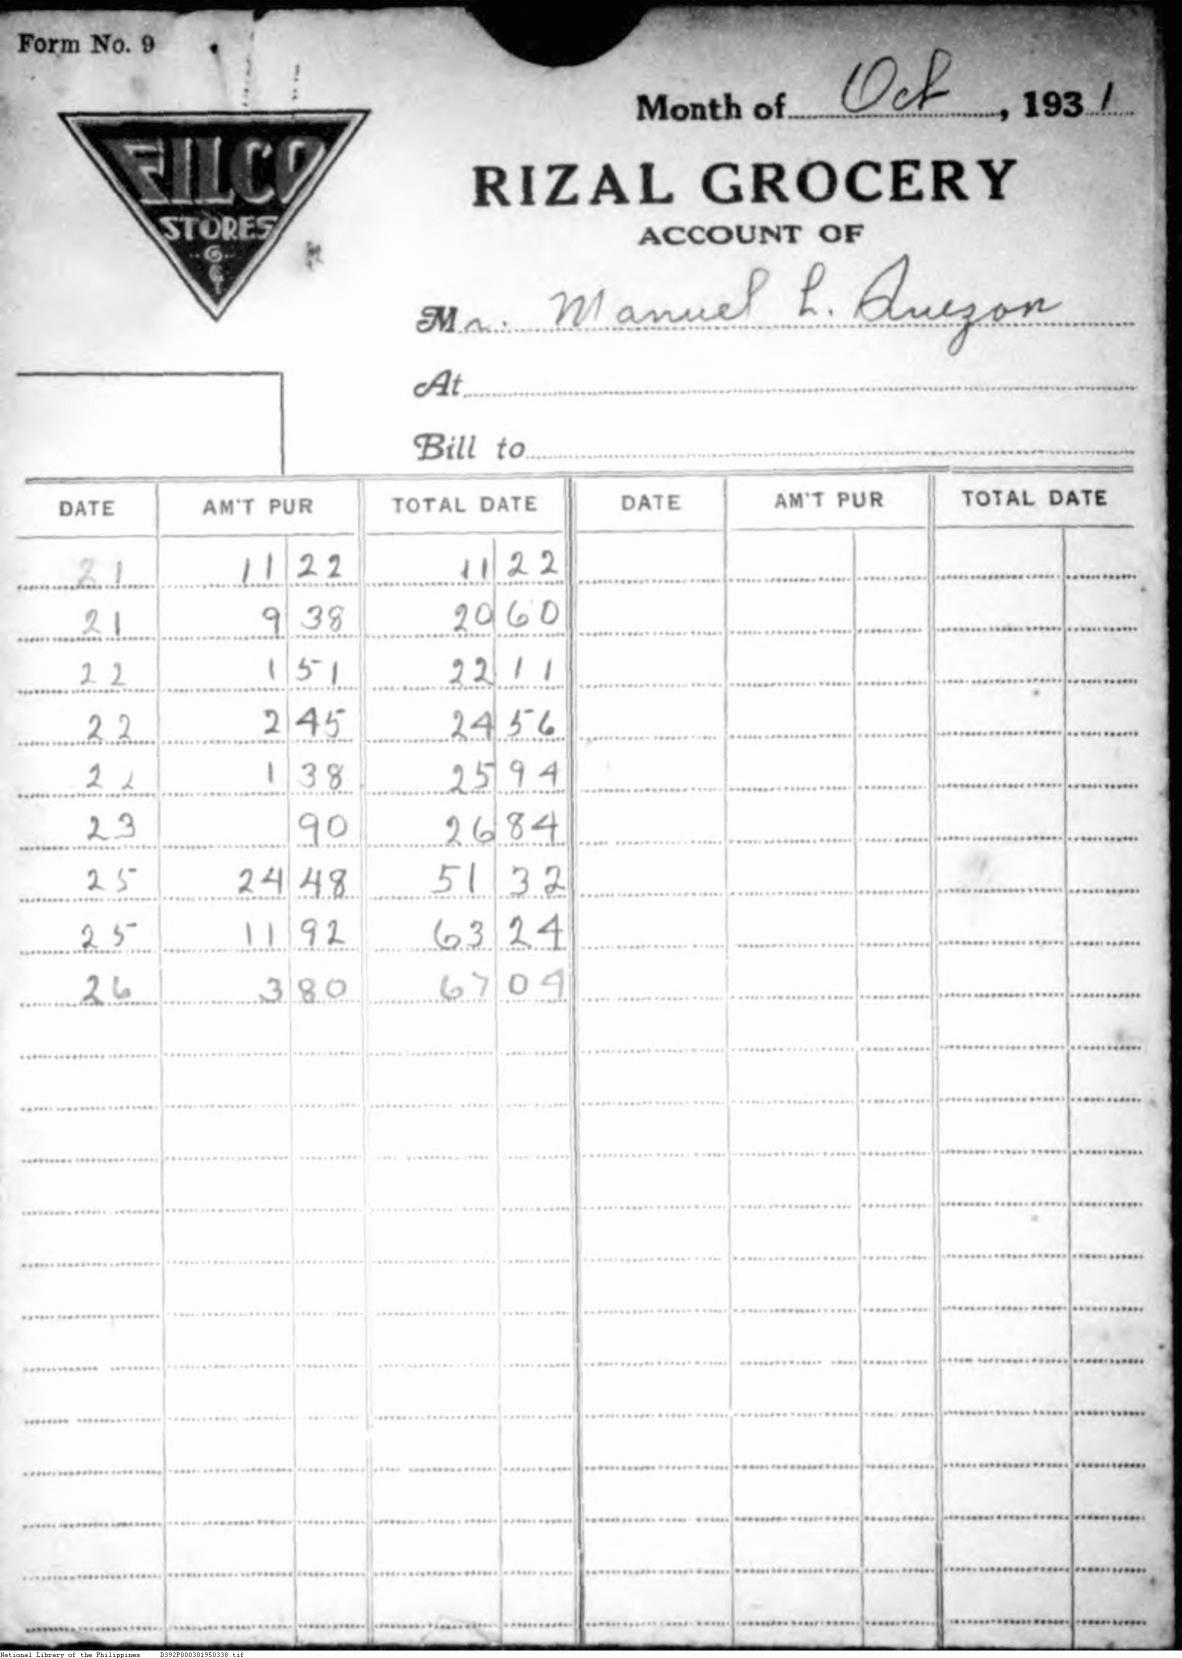 Form No. 9
Month of Oct, 1931
FILCO
STORES
RIZAL GROCERY
ACCOUNT OF
Mr. Manuel L. Quezon
At
Bill to
DATE AM'T PUR TOTAL DATE DATE AM'T PUR TOTAL DATE
21 11 22 11 22
21 9 38 20 60
22 1 51 22 11
22 2 45 24 56
22 1 38 25 94
23 90 26 84
25 24 48 51 32
25 11 92 63 24
26 3 80 67 04
National Library of the Philippines D392P000301950338.tif